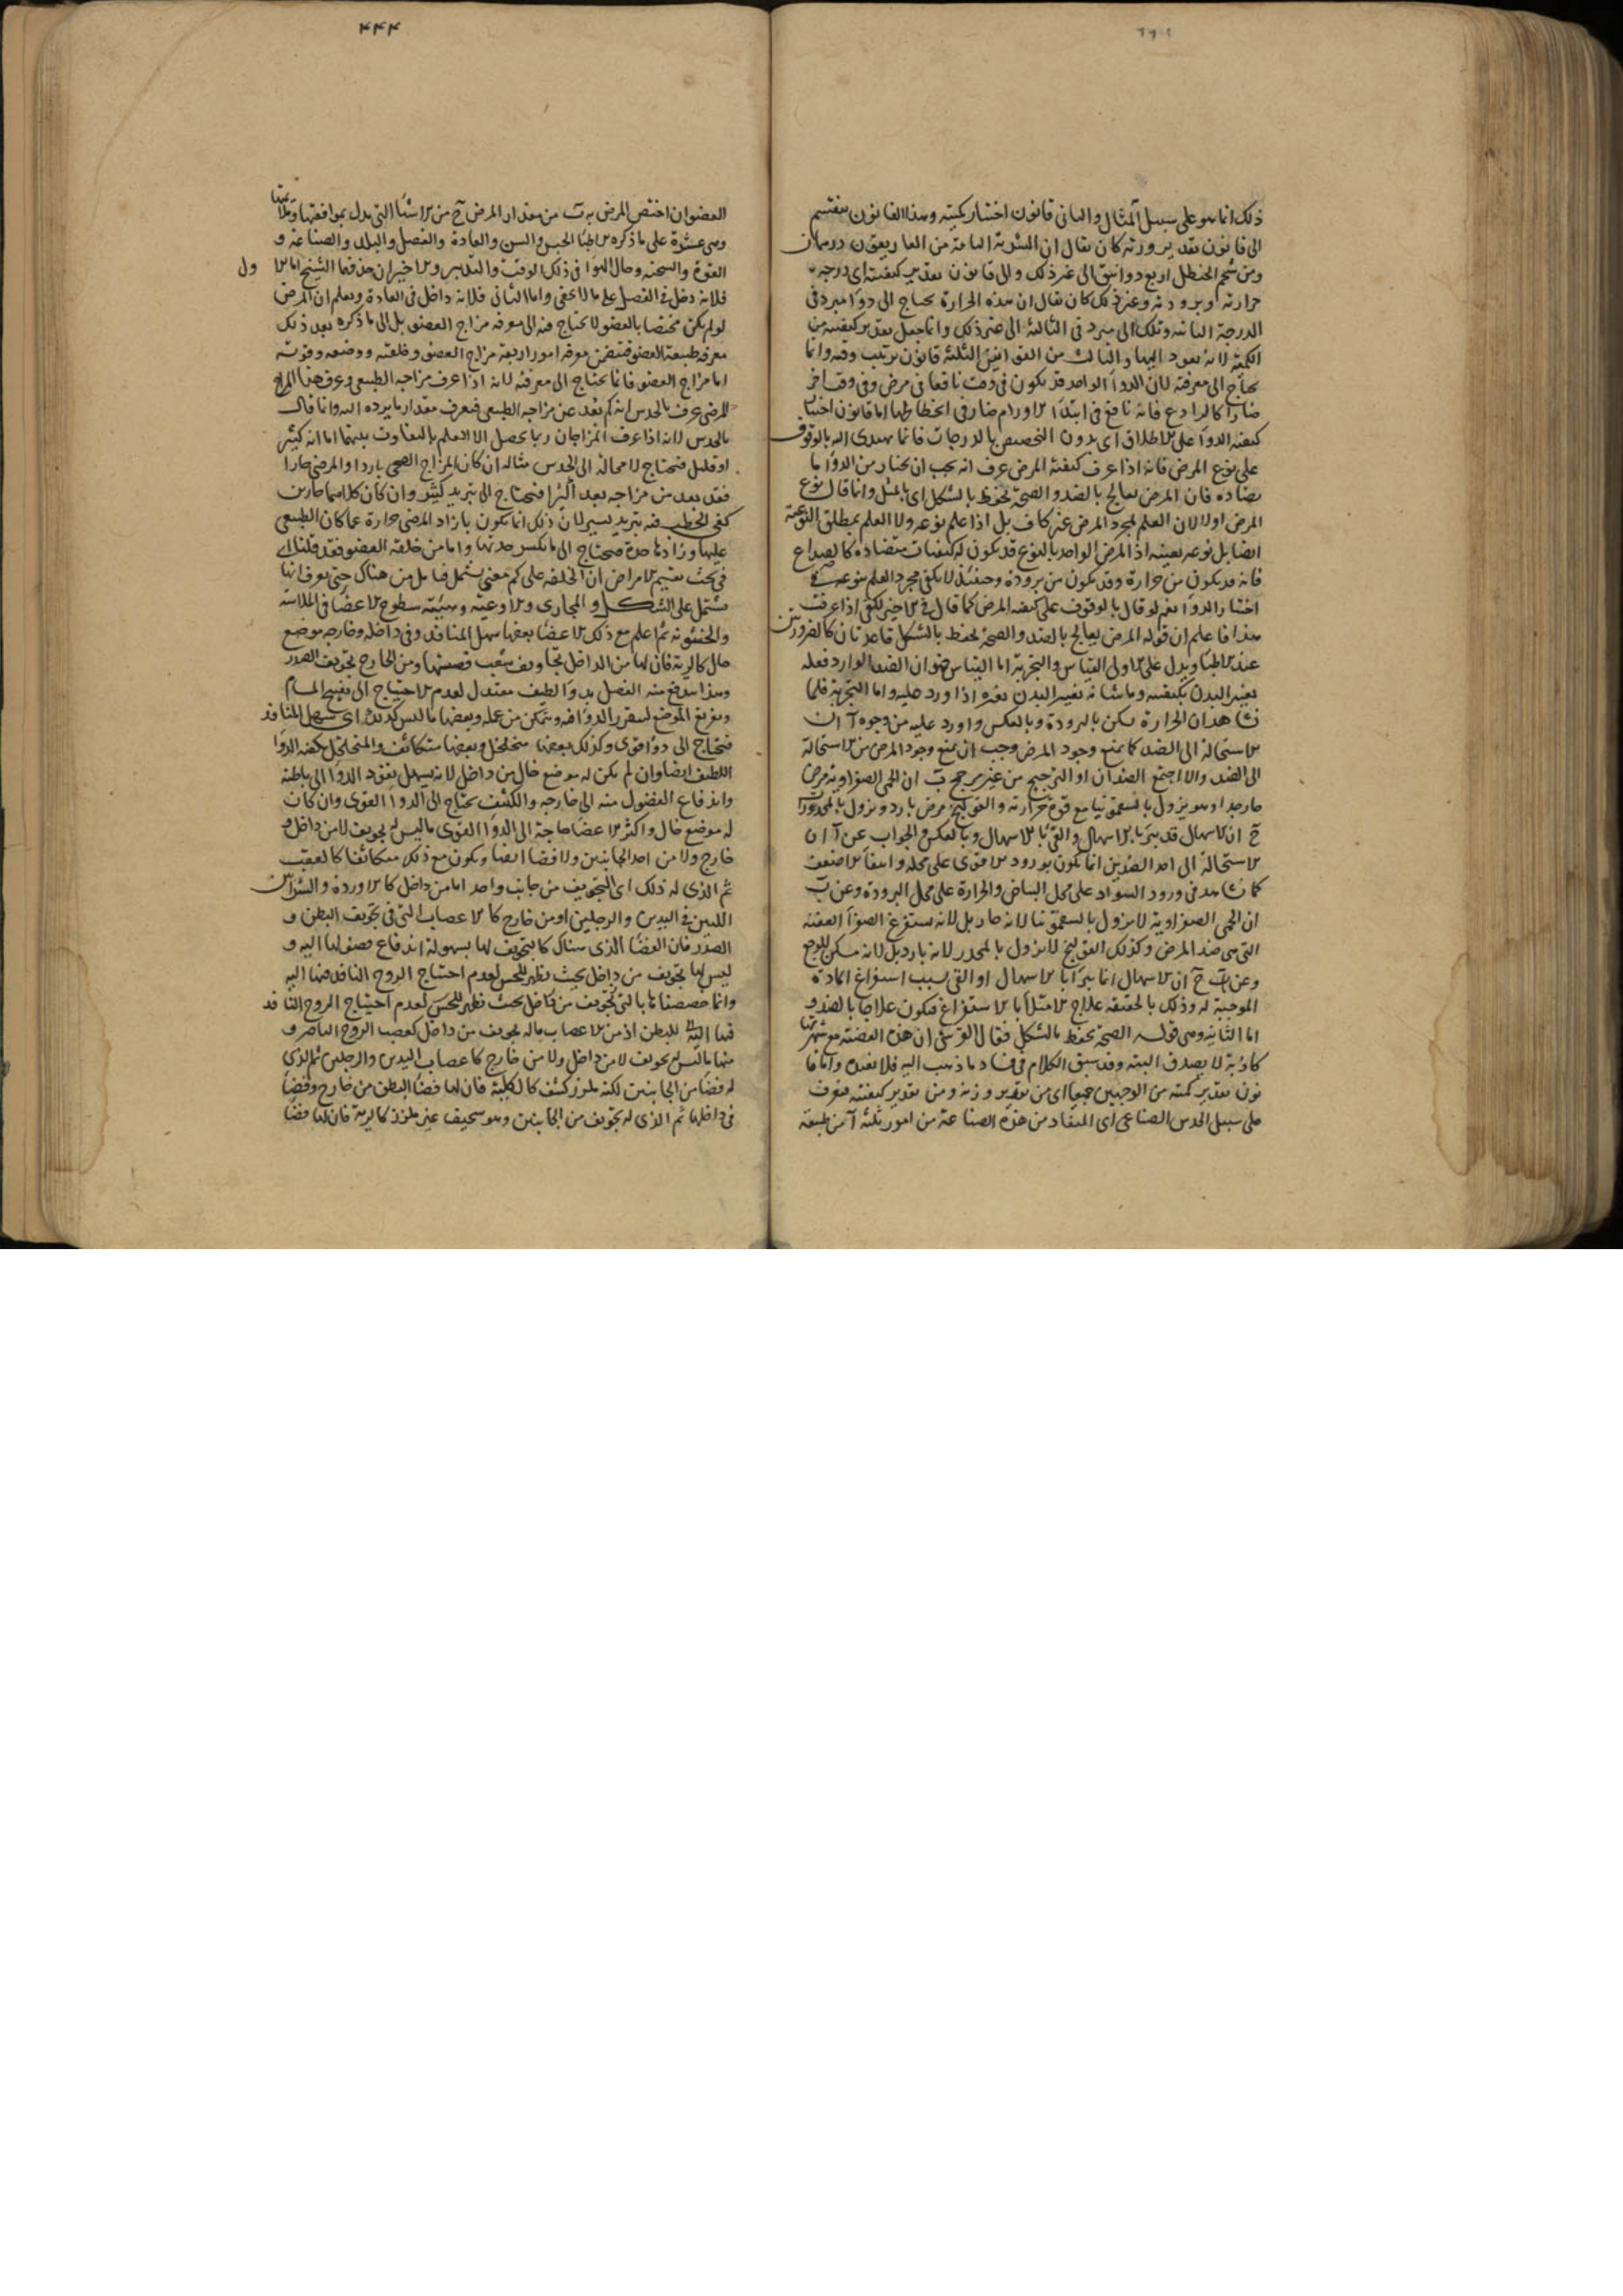 ذلك انما هو على سبيل المثال والثانى قانون اختيار كميته وهذا القانون ينقسم
الى قانون تقدير وزنه كان يقال ان الشربة التامة من الغاريقون درهمان
ومن شحم الحنظل اربع دوانيق الى غير ذلك والى قانون تقدير كيفيته اى درجة
حرارته وبرودته وغير ذلك كان يقال ان هذه الحرارة يحتاج الى دواء مبرد فى
الدرجة الثانية وتلك الى مبرد فى الثالثة الى غير ذلك وانما جعل تقدير كيفيته من
الكمية لانه يعود اليها والثالث من القوانين الثلثة قانون ترتيب وقته وانما
يحتاج الى معرفته لان الدواء الواحد قد يكون فى وقت نافعا فى مرض وفى وقت اخر
ضارا كالرادع فانه نافع فى ابتداء الاورام ضار فى انحطاطها اما قانون اختيار
كيفية الدواء على الاطلاق اى بدون التخصيص بالدرجات فانما يهتدى اليه بالوقوف
على نوع المرض فانه اذا عرف كيفية المرض عرف انه يجب ان يختار من الدواء ما
يضاده فان المرض يعالج بالضد والصحة تحفظ بالشكل اى بالمثل وانما قال نوع
المرض اولا لان العلم بمجرد المرض غير كاف بل اذا علم نوعه ولا العلم بمطلق النوعية
ايضا بل نوعه بعينه اذ المرض الواحد بالنوع قد يكون له كيفيات متضادة كالصداع
فانه قد يكون من حرارة وقد يكون من برودة وحينئذ لا يكفى مجرد العلم بنوعه فى
اختيار الدواء نعم لو قال بالوقوف على كيفية المرض كما قال فى الاخير لكفى اذا عرفت
هذا فاعلم ان قوله المرض يعالج بالضد والصحة تحفظ بالشكل قاعدتان كالضروريتين
عند الاطباء ويدل على الاولى القياس والتجربة اما القياس فهو ان الضد الوارد فعله
يغير البدن بكيفيته وما شانه تغيير البدن يغيره اذا ورد عليه واما التجربة فلما
نشاهد ان الحرارة تسكن بالبرودة وبالعكس واورد عليه من وجوه آ ان
الاستحالة الى الضد كما يمنع وجود المرض وجب ان يمنع وجود المرض من الاستحالة
الى الضد والا اجتمع الضدان او الترجيح من غير مرجح ب ان الحمى الصفراوية مرض
حار جدا وهو يزول بالسقمونيا مع قوة حرارته والقولنج مرض بارد ويزول بالمخدرات
ج ان الاسهال قد يبرا بالاسهال والقئ بالاسهال وبالعكس والجواب عن آ ان
الاستحالة الى احد الضدين انما يكون بورود الاقوى على محله وانتفاء الاضعف
كما نشاهد فى ورود السواد على محل البياض والحرارة على محل البرودة وعن ب
ان الحمى الصفراوية لا يزول بالسقمونيا لانه حار بل لانه يستفرغ الصفراء العفنة
التى هى ضد المرض وكذلك القولنج لا يزول بالمخدر لانه بارد بل لانه مسكن للوجع
وعن ج ان الاسهال انما يبرا بالاسهال او القئ بسبب استفراغ المادة
الموجبة له وذلك بالحقيقة علاج الامتلاء بالاستفراغ فيكون علاجا بالضد و
اما الثانية وهى قوله الصحة تحفظ بالشكل فقال القرشى ان هذه القضية مع شهرتها
كاذبة لا يصدق البتة وقد سبق الكلام فى فساد ما ذهب اليه فلا نعيده واما قا
نون تقدير كميته من الوجهين جميعا اى من تقدير وزنه ومن تقدير كيفيته فيعرف
على سبيل الحدس الصناعى اى المستفاد من هذه الصناعة من امور ثلثة آ من طبيعة
۴۴۴
العضو ان اختص المرض به ب من مقدار المرض ج من الاشياء التى يدل بموافقتها وملائمتها
وهى عشرة على ما ذكره الاطباء الجنس والسن والعادة والفصل والبلد والصناعة و
القوة والسحنة وحال الهواء فى ذلك الوقت والتدبير والاخيران حذفهما الشيخ اما الا
ول
فلانه دخل فى الفصل على ما لا يخفى واما الثانى فلانه داخل فى العادة ويعلم ان المرض
لو لم يكن مختصا بالعضو لا يحتاج فيه الى معرفة مزاج العضو بل الى ما ذكره بعد ذلك
معرفة طبيعة العضو فيتضمن معرفة امور اربعة مزاج العضو وخلقته ووضعه وقوته
اما مزاج العضو فانما يحتاج الى معرفته لانه اذا عرف مزاجه الطبيعى وعرف هذا المزاج
المرضى عرف بالحدس انه كم بعد عن مزاجه الطبيعى فيعرف مقدار ما يرده اليه وانما قال
بالحدس لانه اذا عرف المزاجان ربما يحصل الا العلم بالتفاوت بينهما اما انه كثير
او قليل فيحتاج لا محالة الى الحدس مثاله ان كان المزاج الصحى باردا والمرضى حارا
فقد بعد من مزاجه بعدا كثيرا فيحتاج الى تبريد كثير وان كان كلاهما حارين
كفى الخطب فيه تبريد يسير لان ذلك انما يكون بازدياد المرضى حرارة عما كان الطبيعى
عليها وزادها حدة فيحتاج الى ما يكسر حدتها واما من خلقة العضو فقد قلنا اى
فى بحث تقسيم الامراض ان الخلقة على كم معنى يشتمل فتامل من هناك حتى يعرف انها
يشتمل على الشكل والمجارى والاوعية وهيئة سطوح الاعضاء فى الملاسة
والخشونة ثم اعلم مع ذلك الاعضاء بعضها سهل المنافذ وفى داخله وخارجه موضع
خال كالرية فان لها من الداخل تجاويف شعب قصبتها ومن الخارج تجويف الصدر
وهذا يندفع منه الفضل بدواء لطيف معتدل لعدم الاحتياج الى تفتيح المسام
وتفريغ الموضع ليستقر الدواء فيه ويتمكن من عمله وبعضها ما ليس كذلك اى سهل المنافذ
فيحتاج الى دواء قوى وكذلك بعضها متخلخل وبعضها متكاثف والمتخلخل يكفيه الدواء
اللطيف ايضا وان لم يكن له موضع خال من داخل لانه يسهل نفوذ الدواء الى باطنه
واندفاع الفضول منه الى خارجه والكثيف يحتاج الى الدواء القوى وان كان
له موضع خال واكثر الاعضاء حاجة الى الدواء القوى ما ليس له تجويف لا من داخل و
خارج ولا من احد الجانبين ولا فضاء ايضا ويكون مع ذلك متكاثفا كالعقب
ثم الذى له ذلك اى التجويف من جانب واحد اما من داخل كالاوردة والشرائين
اللتين فى اليدين والرجلين او من خارج كالاعصاب التى فى تجويف البطن و
الصدر فان الفضاء الذى هناك كالتجويف لها بسهولة اندفاع فضولها اليه و
ليس لها تجويف من داخل بحيث يظهر للحس لعدم احتياج الروح النافذ فيها اليه
وانما خصصناها بالتى تجويف من داخل بحيث يظهر للحس لعدم احتياج الروح النافذ
فيها اليه للبطن اذ من الاعصاب ما له تجويف من داخل كعصب الروح الباصر و
منها ما ليس له تجويف لا من داخل ولا من خارج كاعصاب اليدين والرجلين ثم الذى
له فضاء من الجانبين لكنه ملزز كثيف كالكلية فان لها فضاء البطن من خارج وفضاء
فى داخلها ثم الذى له تجويف من الجانبين وهو سخيف غير ملزز كالرية فان لها فضاء